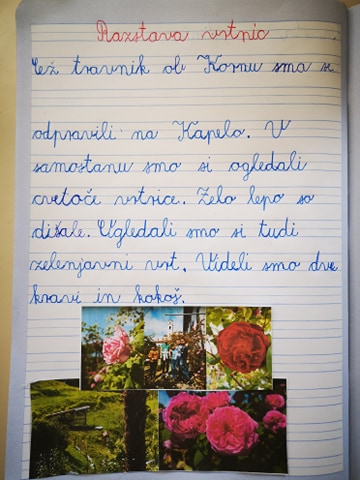 Razstava vrtnic
Čež travnik ob Kornu smo se
odpravili na Kapelo. V
samostanu smo si ogledali
cvetoče vrtnice. Zelo lepo so
dišale. Ogledali smo si tudi
zelenjavni vrt. Videli smo dve
kravi in kokoš.